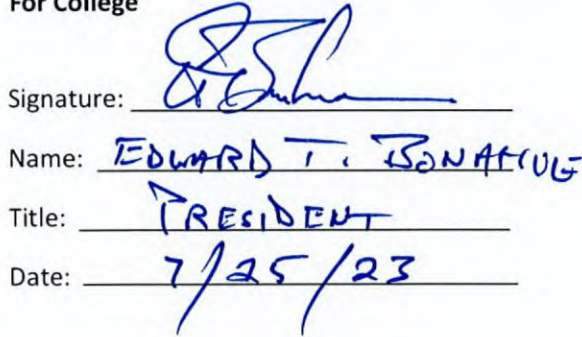 For College
Signature:
Name: EDWARD T. BONAHUE
Title: PRESIDENT
Date: 7/25/23